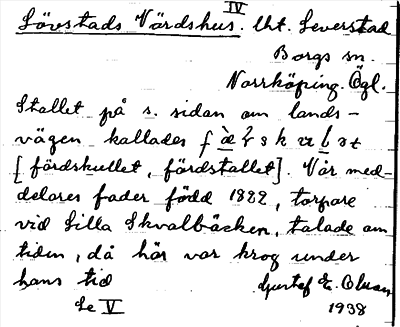 IV
Lövstads Värdshus. Utt. Leverstad
Borgs sn.
Norrköping. Ögl.
Stallet på s. sidan om lands-
vägen kallades
[färdskullet, färdstallet]. Vår med-
delares fader född 1882, torpare
vid Lilla Skvalbäcken, talade om
tiden, då här var krog under
hans tid Gustaf E. Olsson
Se V 1938